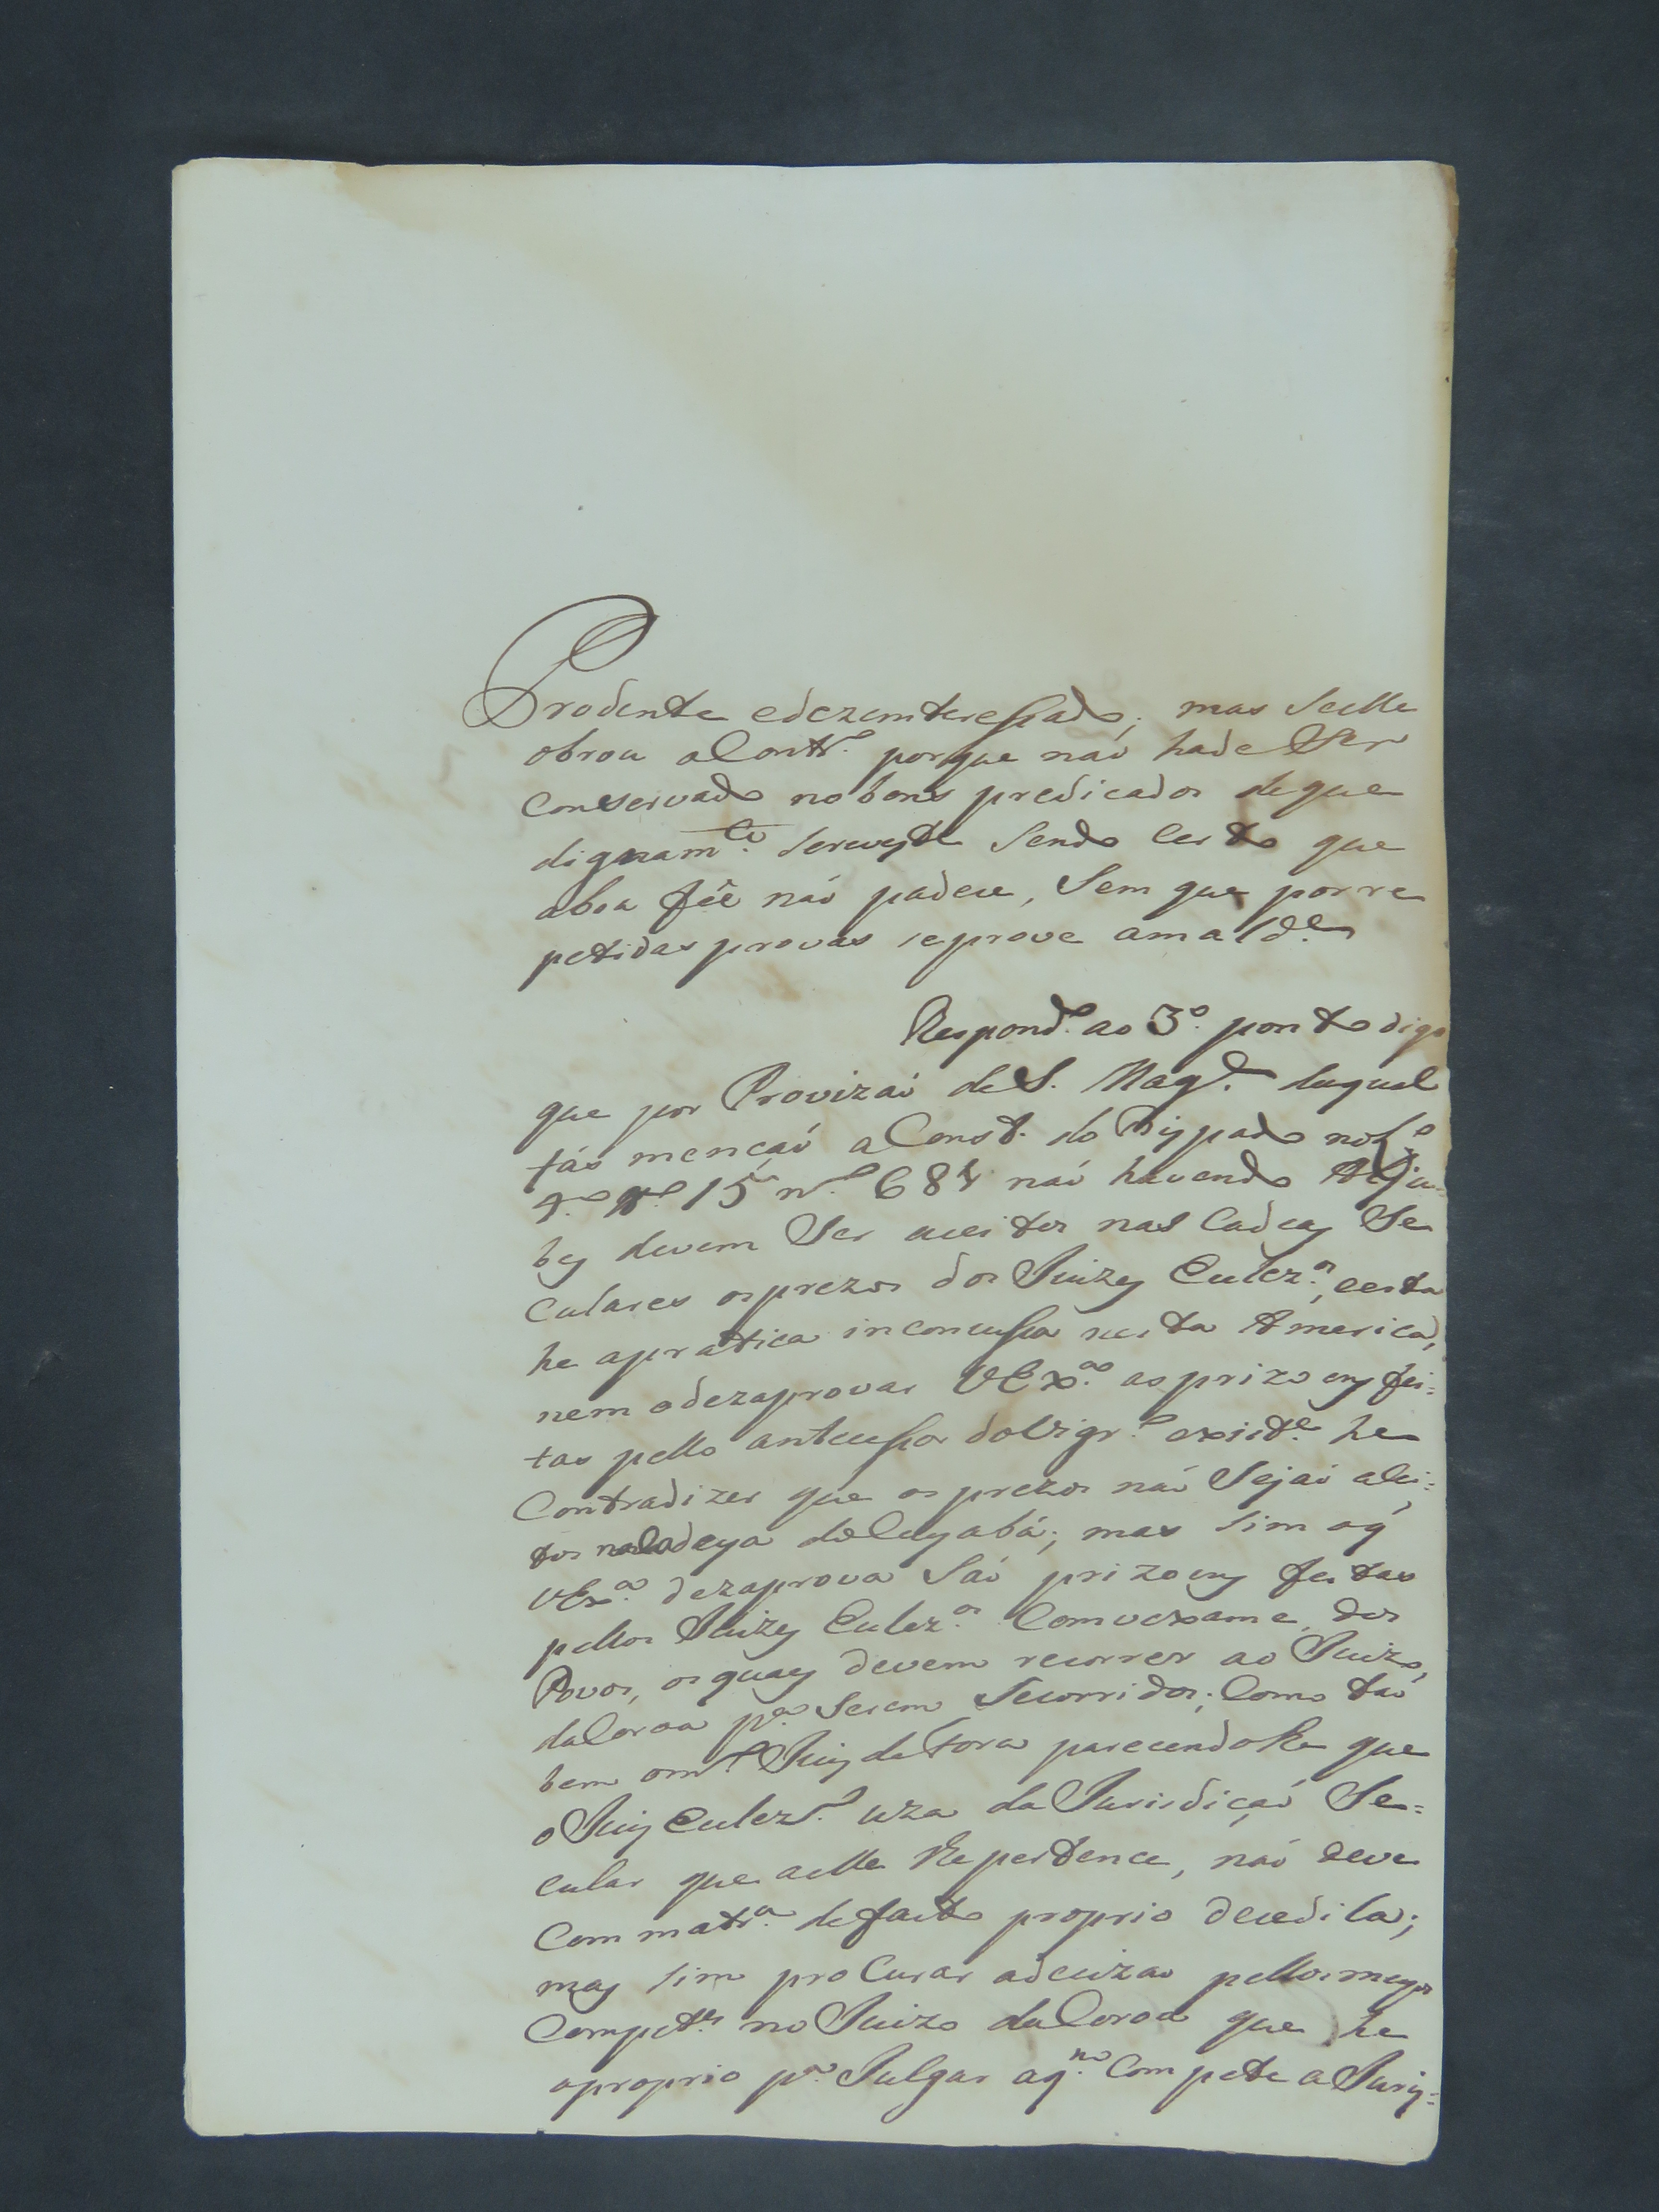 Prodente edezemteressado; mas seelle
obrou aContr.º porque naó hade Ser
Conservado nobons predicados deque
dignam.te sereveste Sendo certo que
aboa feê naó padece, Sem que porre
petidas provas seprove amald.e
Respond.º ao 3.º ponto digo
que por Provizaó deS. Mag.e daqual
fás mençaó aConst. do Bispado noL.º
4.º tt.º 15 n.º 684 naó havendo Alju-
bes devem Ser aceitos nas Cadeas Se
Culares osprezos dos Juizes Eclez.os, esta
he apratica inconcussa nesta America,
nem odezaprovar VEx.ª asprizoens fei=
tas pello antecessor doVigr.º exist.e he
Contradizer que os prezos naó Sejaó acei=
tos naCadeya doCuyabá; mas sim oq̃
VEx.ª dezaprova Saó prizoens feitas
pellos Juizes Eclez.os Comvexame dos
Povos, osquaes devem recorrer ao Juizo,
daCoroa p.ª Serem Secorridos; Como taó
bem om.º Juiz deFora parecendolhe que
o Juiz Eclez.º uza da Jurisdiçaó Se=
cular que aelle lhe pertence, naó deve
Com matr.ª defacto proprio decedila;
mas sim proCurar adecizaó pellos meyos
Compet.es no Juizo daCoroa que he
oproprio p.ª Julgar aq.m Compete a Juris=